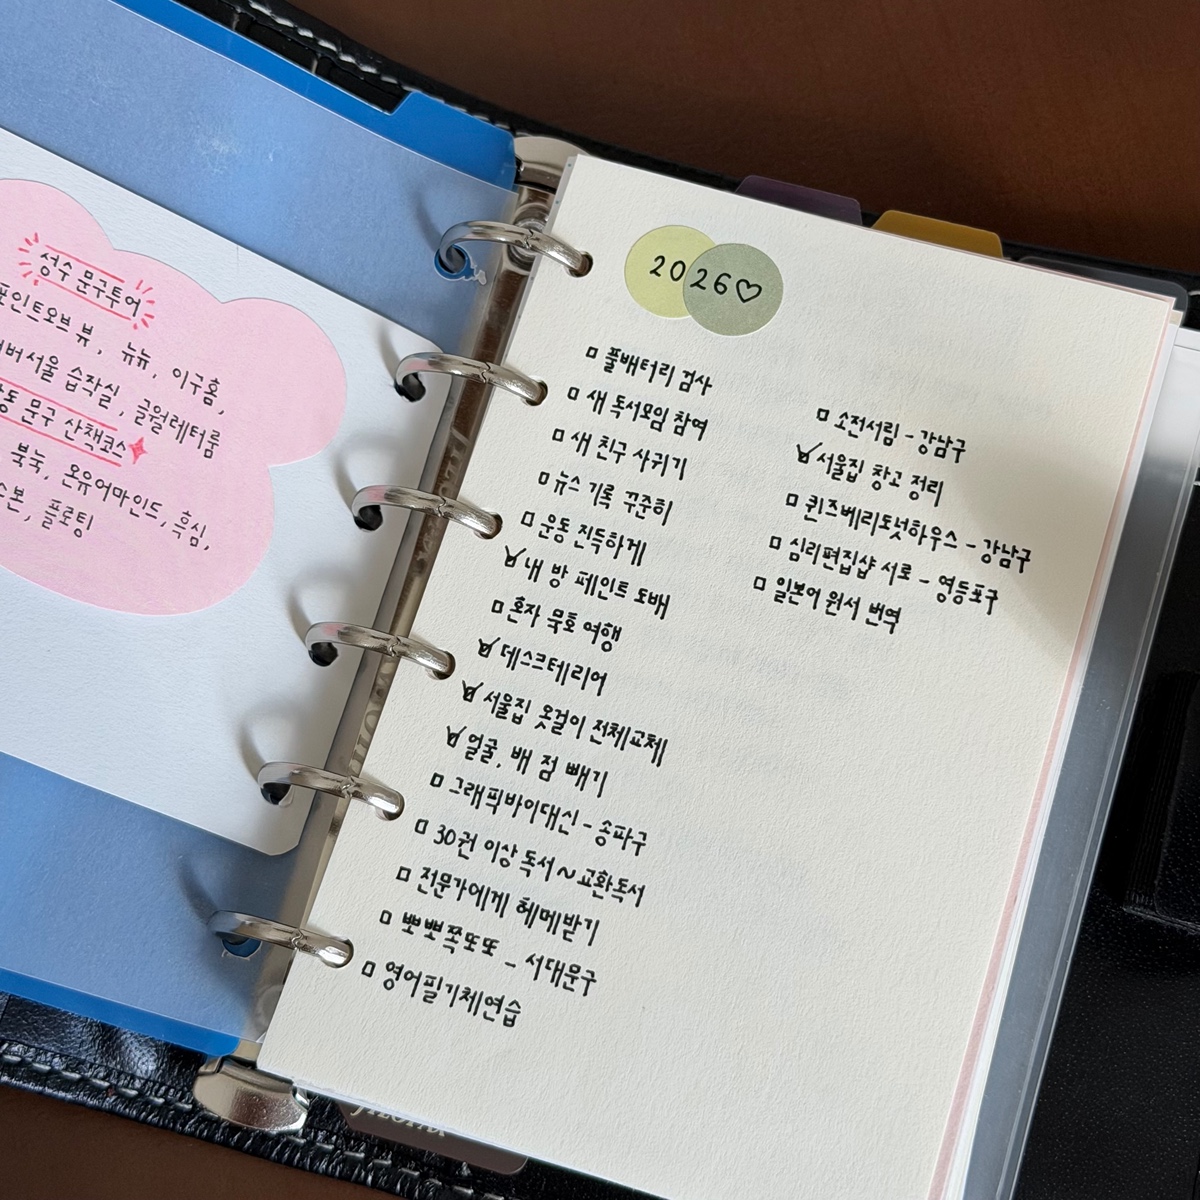 성수 문구투어
포인트오브 뷰, 뉴뉴, 이구홈,
서울 습작실, 글월레터룸
문구 산책코스
북눅, 온유어마인드, 흑심,
플로팅
2026♡
□ 풀배터리 검사
□ 새 독서모임 참여
□ 새 친구 사귀기
□ 뉴스 기록 꾸준히
□ 운동 진득하게
☑ 내 방 페인트 도배
□ 혼자 묵호 여행
☑ 데스크테리어
☑ 서울집 옷걸이 전체교체
☑ 얼굴, 배 점 빼기
□ 그래픽바이대신 - 송파구
□ 30권 이상 독서 ~ 교환독서
□ 전문가에게 헤메받기
□ 뽀뽀쪽또또 _ 서대문구
□ 영어필기체연습
□ 소전서림 - 강남구
☑ 서울집 창고 정리
□ 퀸즈베리도넛하우스 - 강남구
□ 심리편집샵 서로 - 영등포구
□ 일본어 원서 번역